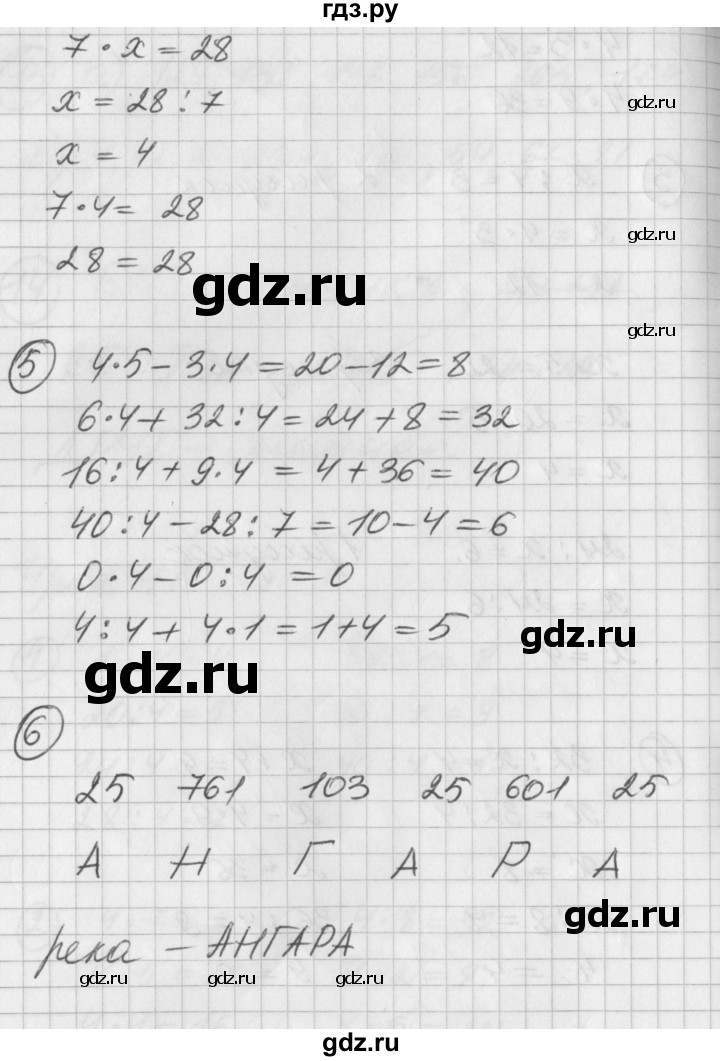 гдз.ру
7 · x = 28
x = 28 : 7
gdz.ru
x = 4
7 · 4 = 28
gdz.ru
28 = 28
gdz.ru
gdz.ru
5 4·5 – 3·4 = 20 – 12 = 8
6·4 + 32:4 = 24 + 8 = 32
16:4 + 9·4 = 4 + 36 = 40
40:4 – 28:7 = 10 – 4 = 6
0·4 – 0:4 = 0
4:4 + 4·1 = 1+4 = 5
gdz.ru
gdz.ru
6
25 761 103 25 601 25
А Н Г А Р А
gdz.ru
река – АНГАРА
gdz.ru gdz.ru gdz.ru gdz.ru
gdz.ru